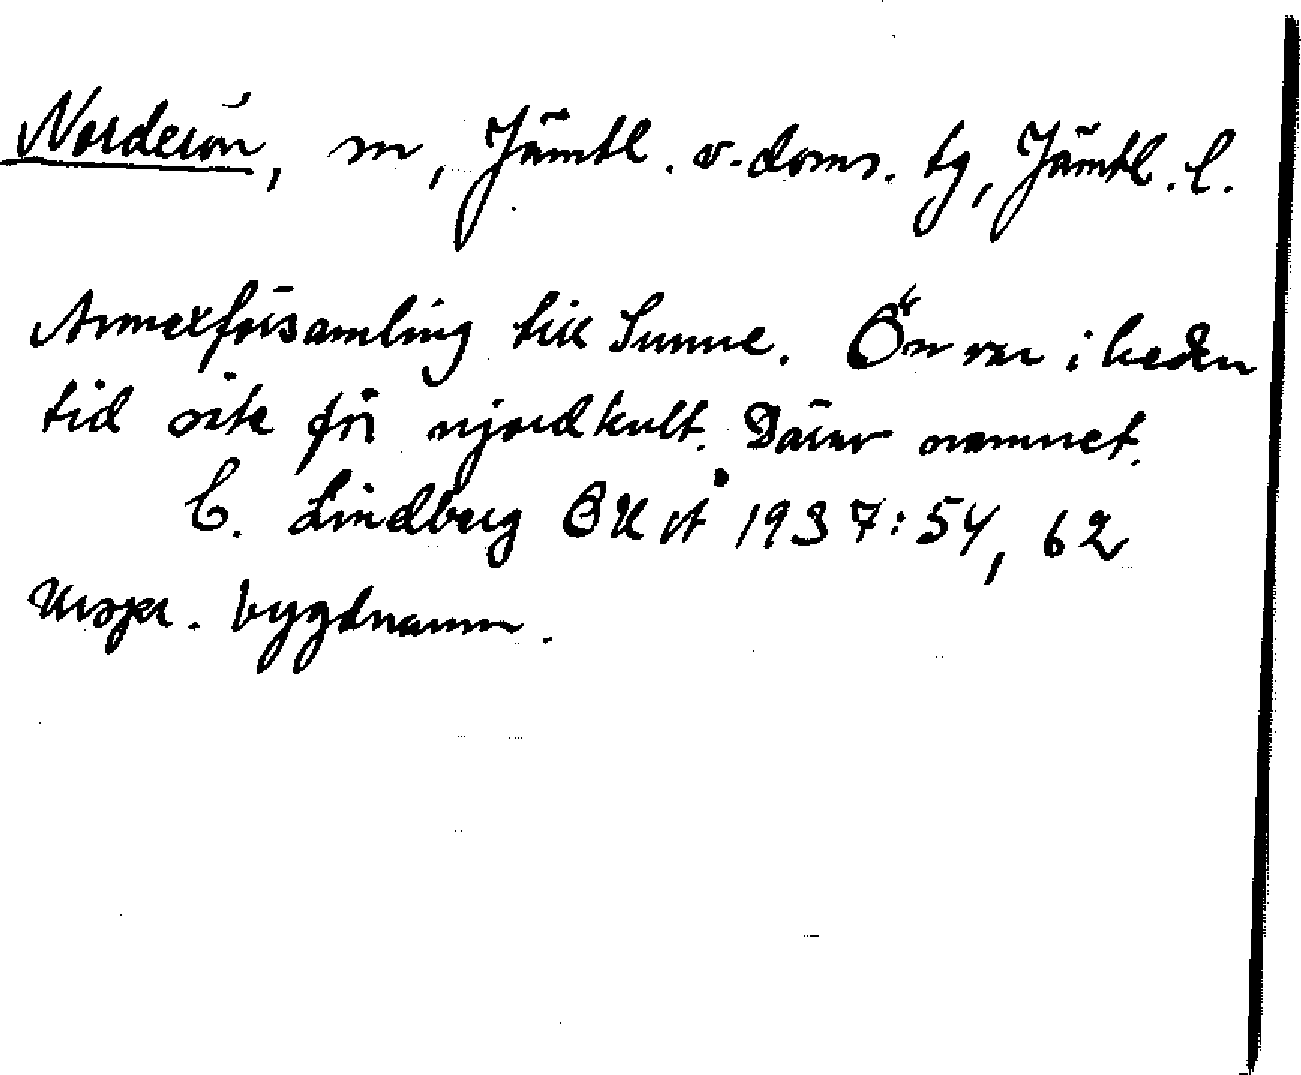 Norderön, sn, Jämtl. v. doms. tg, Jämtl. l.
Annexförsamling till Sunne. Ön var i heden
tid säte för njordkult. Därav namnet.
C. Lindberg BKÅ 1937:54, 62
Urspr. bygdnamn.